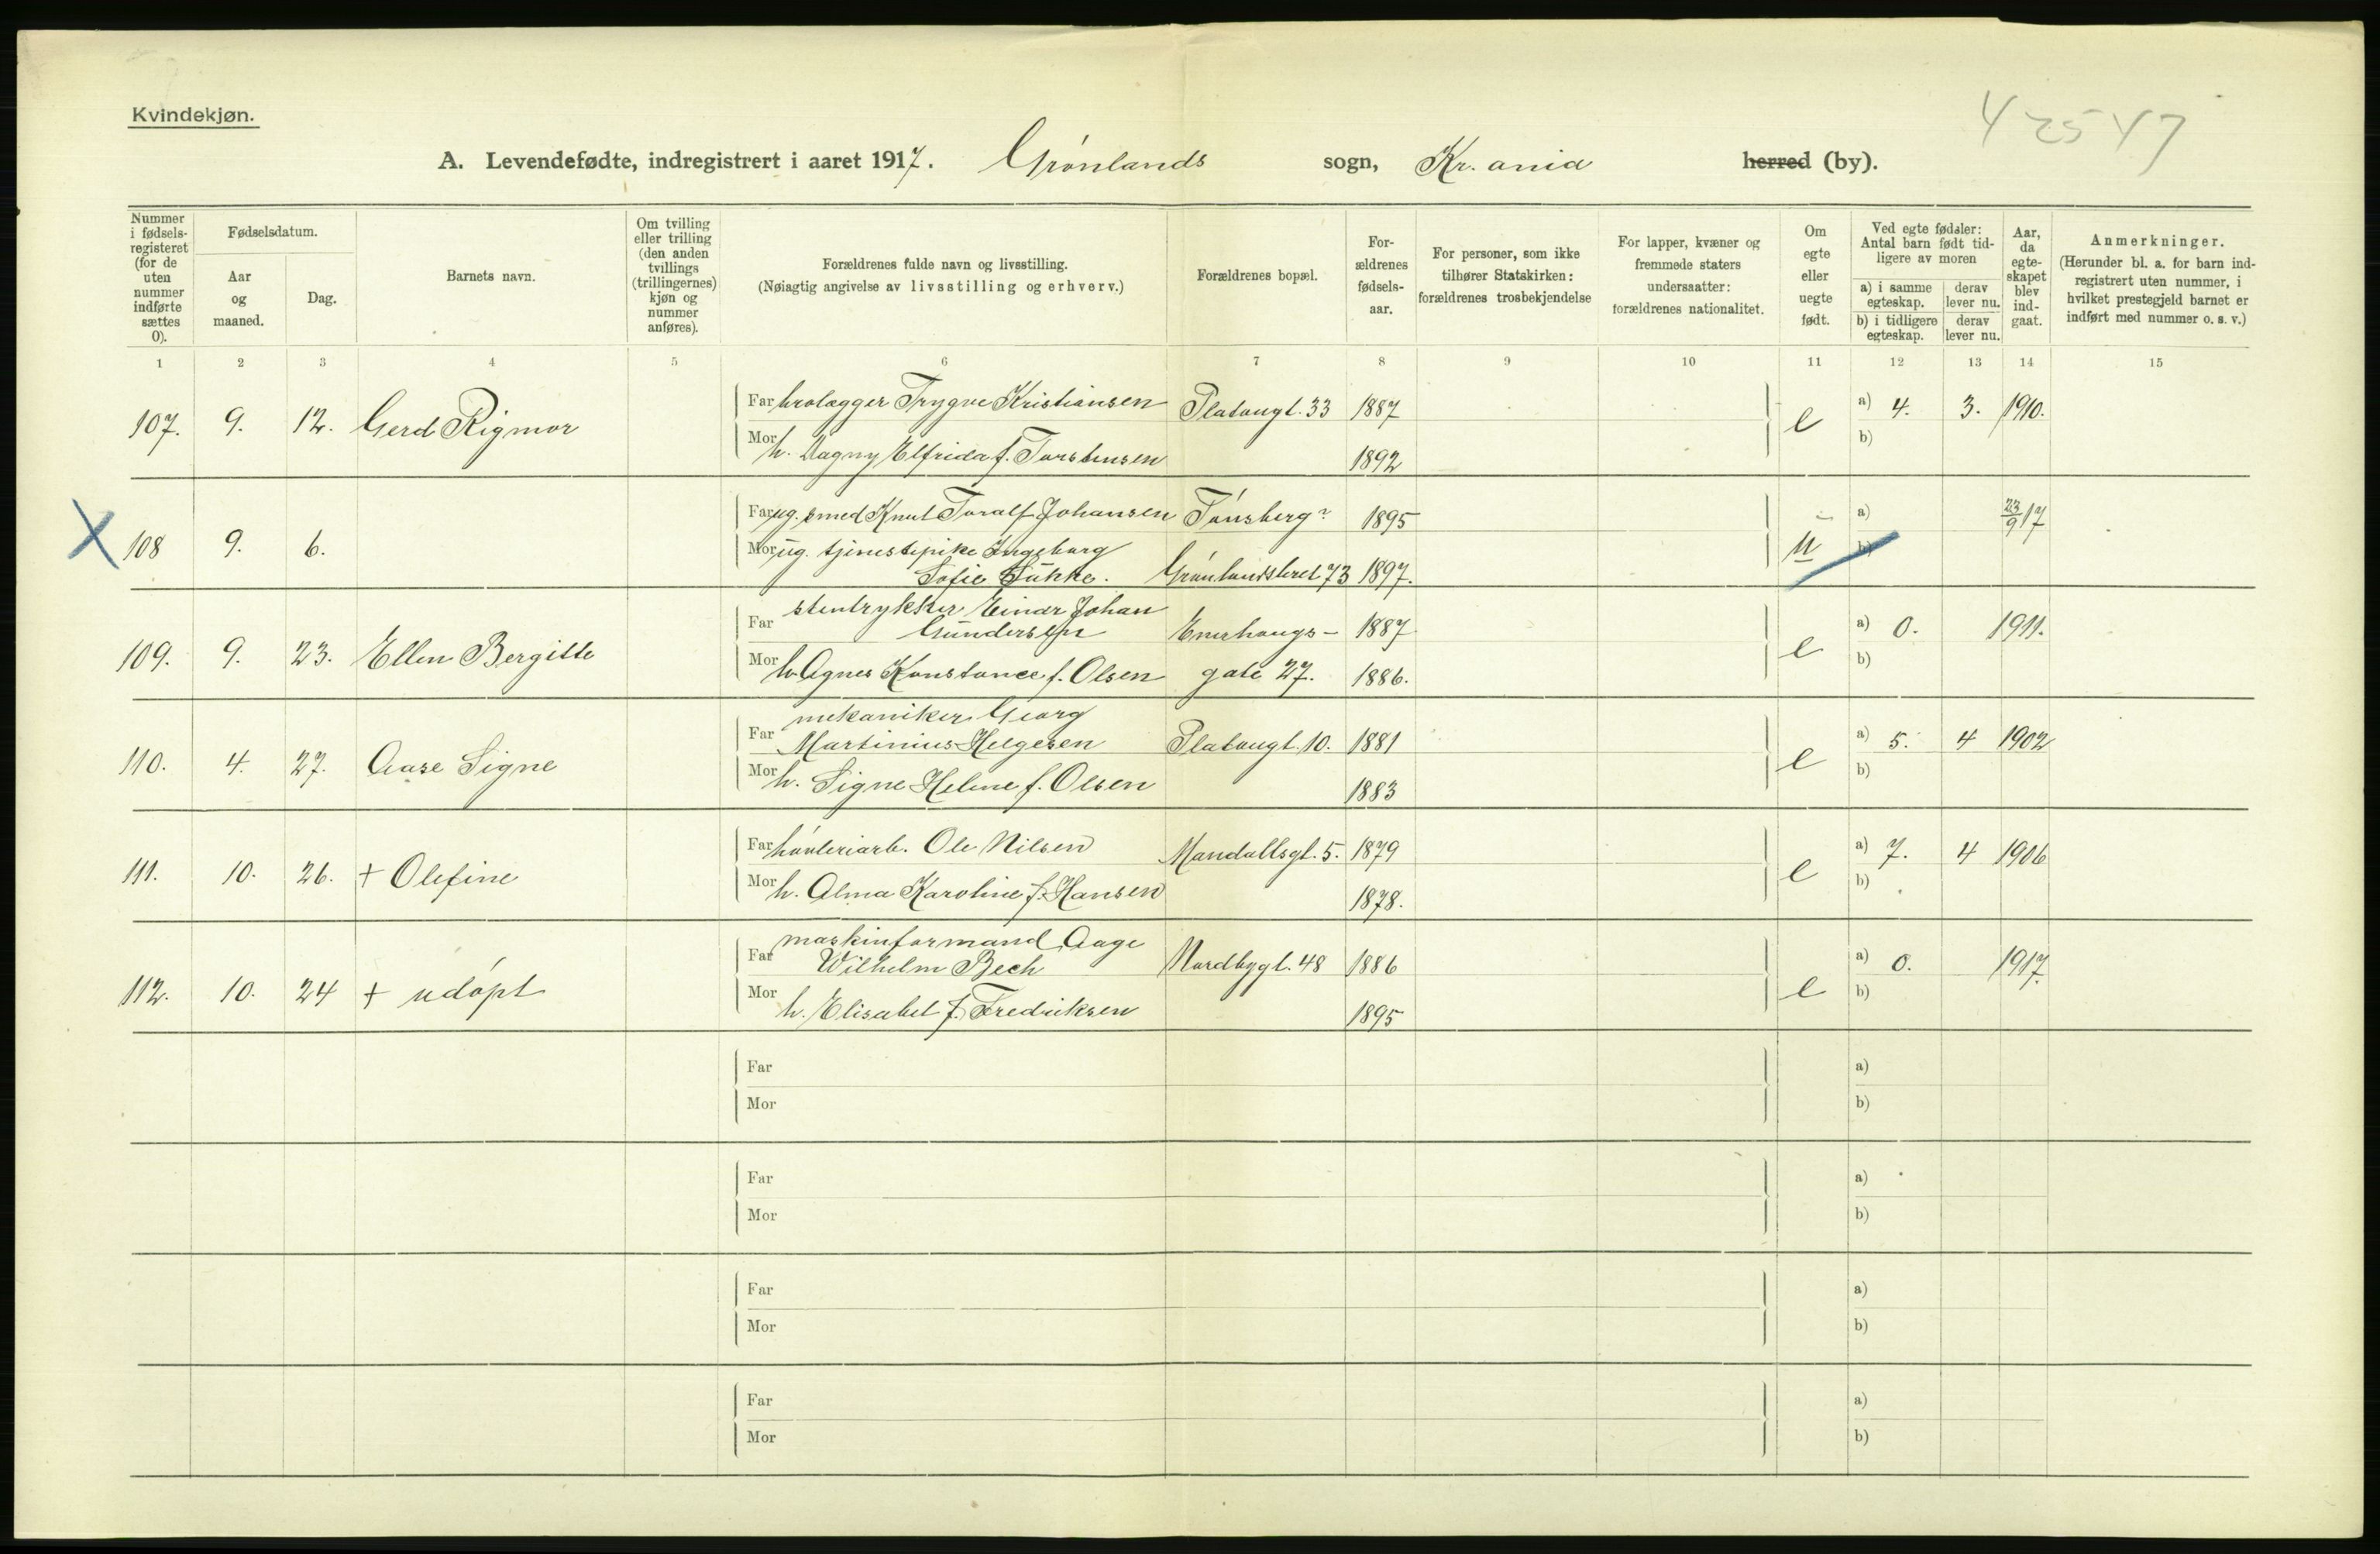 Kvindekjøn.
42547
A. Levendefødte, indregistrert i aaret 1917. Grønlands sogn, Kr.ania herred (by).
Nummer i fødsels-registeret (for de uten nummer indførte sættes 0).
Fødselsdatum.
Aar og maaned.
Dag.
Barnets navn.
Om tvilling eller trilling (den anden tvillings (trillingernes) kjøn og nummer anføres).
Forældrenes fulde navn og livsstilling.
(Nøiagtig angivelse av livsstilling og erhverv.)
Forældrenes bopæl.
For-ældrenes fødsels-aar.
For personer, som ikke tilhører Statskirken: forældrenes trosbekjendelse
For lapper, kvæner og fremmede staters undersaatter: forældrenes nationalitet.
Om egte eller uegte født.
Ved egte fødsler: Antal barn født tid-ligere av moren
a) i samme egteskap.
derav lever nu.
b) i tidligere egteskap.
derav lever nu.
Aar, da egte-skapet blev ind-gaat.
Anmerkninger.
(Herunder bl. a. for barn ind-registrert uten nummer, i hvilket prestegjeld barnet er indført med nummer o. s. v.)
1 2 3 4 5 6 7 8 9 10 11 12 13 14 15
Far brolægger Trygve Kristiansen Platougt. 33 1887 a) 4. 3. 1910.
107. 9. 12. Gerd Rigmor e
Mor h. Dagny Elfrida f. Torstensen 1892 b)
Far ug. smed Knut Toralf Johansen Tønsberg? 1895 a) 23/9 17
X 108 9. 6. u
Mor ug. tjenestepike Ingeborg b)
Sofie Grønlandsleret 73 1897.
stentrykker Einar Johan
Far Gundersen Enerhaugs- 1887 a) 0. 1911.
109. 9. 23. Ellen Bergitte e
Mor h. Agnes Konstance f. Olsen gate 27. 1886. b)
mekaniker Georg
Far Martinius Helgesen Platougt. 10. 1881 a) 5. 4 1902
110. 4. 27. Aase Signe e
Mor h. Signe Helene f. Olsen 1883 b)
Far høvleriarb. Ole Nilsen Mandallsgt. 5. 1879 a) 7. 4 1906
111. 10. 26. + Olefine e
Mor h. Alma Karoline f. Hansen 1878. b)
maskinformand Aage
Far Wilhelm Bech Nordbygt. 48 1886 a) 0. 1917.
112. 10. 24 + udøpt e
Mor h. Elisabet f. Fredriksen 1895 b)
Far a)
Mor b)
Far a)
Mor b)
Far a)
Mor b)
Far a)
Mor b)